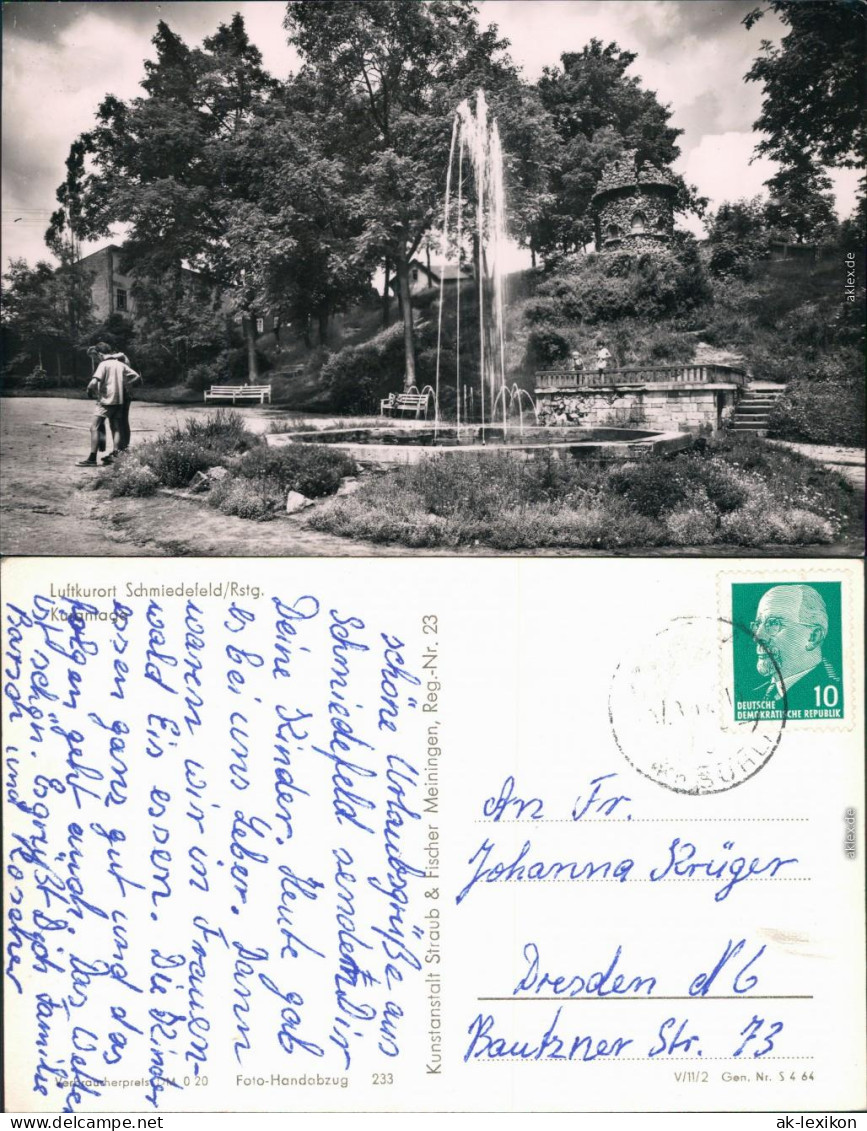 aklex.de
Luftkurort Schmiedefeld/Rstg.
Kuranlage
schöne Urlaubsgrüße aus
Schmiedefeld sendet Dir
Deine Kinder. Heute gab
es bei uns Leber. Dann
waren wir in Frauen-
wald Eis essen. Die Kinder
essen ganz gut und das
folgen geht auch. Das Wetter
ist schön. Es grüßt Dich Familie
Barsch und
Verbraucherpreis DM 0 20 Foto-Handabzug 233
Kunstanstalt Straub & Fischer Meiningen, Reg.-Nr. 23
DEUTSCHE
DEMOKRATISCHE REPUBLIK
10
SUHL
An Fr.
Johanna Krüger
Dresden N 6
Bautzner Str. 73
V/11/2 Gen. Nr. S 4 64
aklex.de
www.ak-ansichtskarten.de
ak-lexikon